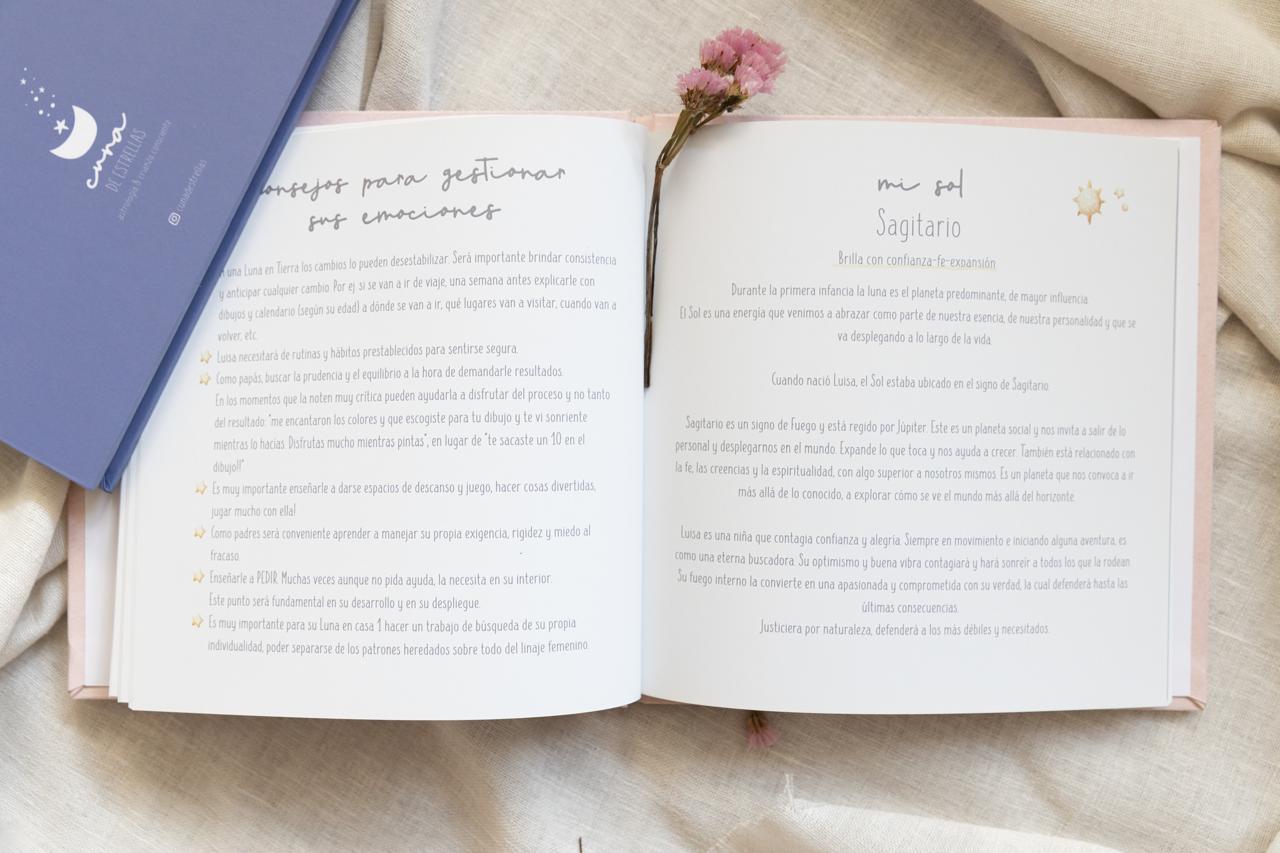 cuna
DE ESTRELLAS
astrología & crianza consciente
cunadestrellas
consejos para gestionar
sus emociones
una Luna en Tierra los cambios lo pueden desestabilizar. Será importante brindar consistencia
y anticipar cualquier cambio. Por ej. si se van a ir de viaje, una semana antes explicarle con
dibujos y calendario (según su edad) a dónde se van a ir, qué lugares van a visitar, cuando van a
volver, etc.
Luisa necesitará de rutinas y hábitos prestablecidos para sentirse segura.
Como papás, buscar la prudencia y el equilibrio a la hora de demandarle resultados.
En los momentos que la noten muy crítica pueden ayudarla a disfrutar del proceso y no tanto
del resultado: "me encantaron los colores y que escogiste para tu dibujo y te vi sonriente
mientras lo hacías. Disfrutas mucho mientras pintas", en lugar de "te sacaste un 10 en el
dibujo!!"
Es muy importante enseñarle a darse espacios de descanso y juego, hacer cosas divertidas,
jugar mucho con ella!
Como padres será conveniente aprender a manejar su propia exigencia, rigidez y miedo al
fracaso.
Enseñarle a PEDIR. Muchas veces aunque no pida ayuda, la necesita en su interior.
Este punto será fundamental en su desarrollo y en su despliegue.
Es muy importante para su Luna en casa 1 hacer un trabajo de búsqueda de su propia
individualidad, poder separarse de los patrones heredados sobre todo del linaje femenino.
mi sol
Sagitario
Brilla con confianza-fe-expansión
Durante la primera infancia la luna es el planeta predominante, de mayor influencia.
El Sol es una energía que venimos a abrazar como parte de nuestra esencia, de nuestra personalidad y que se
va desplegando a lo largo de la vida.
Cuando nació Luisa, el Sol estaba ubicado en el signo de Sagitario.
Sagitario es un signo de Fuego y está regido por Júpiter. Este es un planeta social y nos invita a salir de lo
personal y desplegarnos en el mundo. Expande lo que toca y nos ayuda a crecer. También está relacionado con
la fe, las creencias y la espiritualidad, con algo superior a nosotros mismos. Es un planeta que nos convoca a ir
más allá de lo conocido, a explorar cómo se ve el mundo más allá del horizonte.
Luisa es una niña que contagia confianza y alegría. Siempre en movimiento e iniciando alguna aventura, es
como una eterna buscadora. Su optimismo y buena vibra contagiará y hará sonreír a todos los que la rodean.
Su fuego interno la convierte en una apasionada y comprometida con su verdad, la cual defenderá hasta las
últimas consecuencias.
Justiciera por naturaleza, defenderá a los más débiles y necesitados.